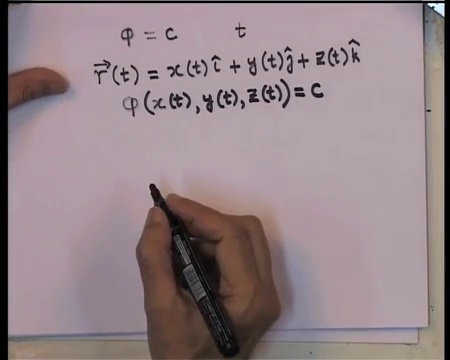 φ = c t
r⃗(t) = x(t)î + y(t)ĵ + z(t)k̂
φ(x(t), y(t), z(t)) = c